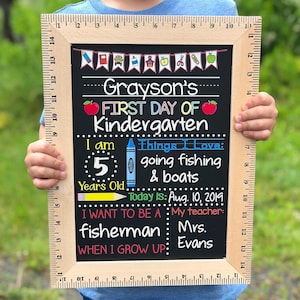 Grayson's
FIRST DAY OF
Kindergarten
I am
5
Years Old
Things I Love:
going fishing
& boats
Today is: Aug. 10, 2019
I WANT TO BE A
fisherman
WHEN I GROW UP
My teacher:
Mrs.
Evans